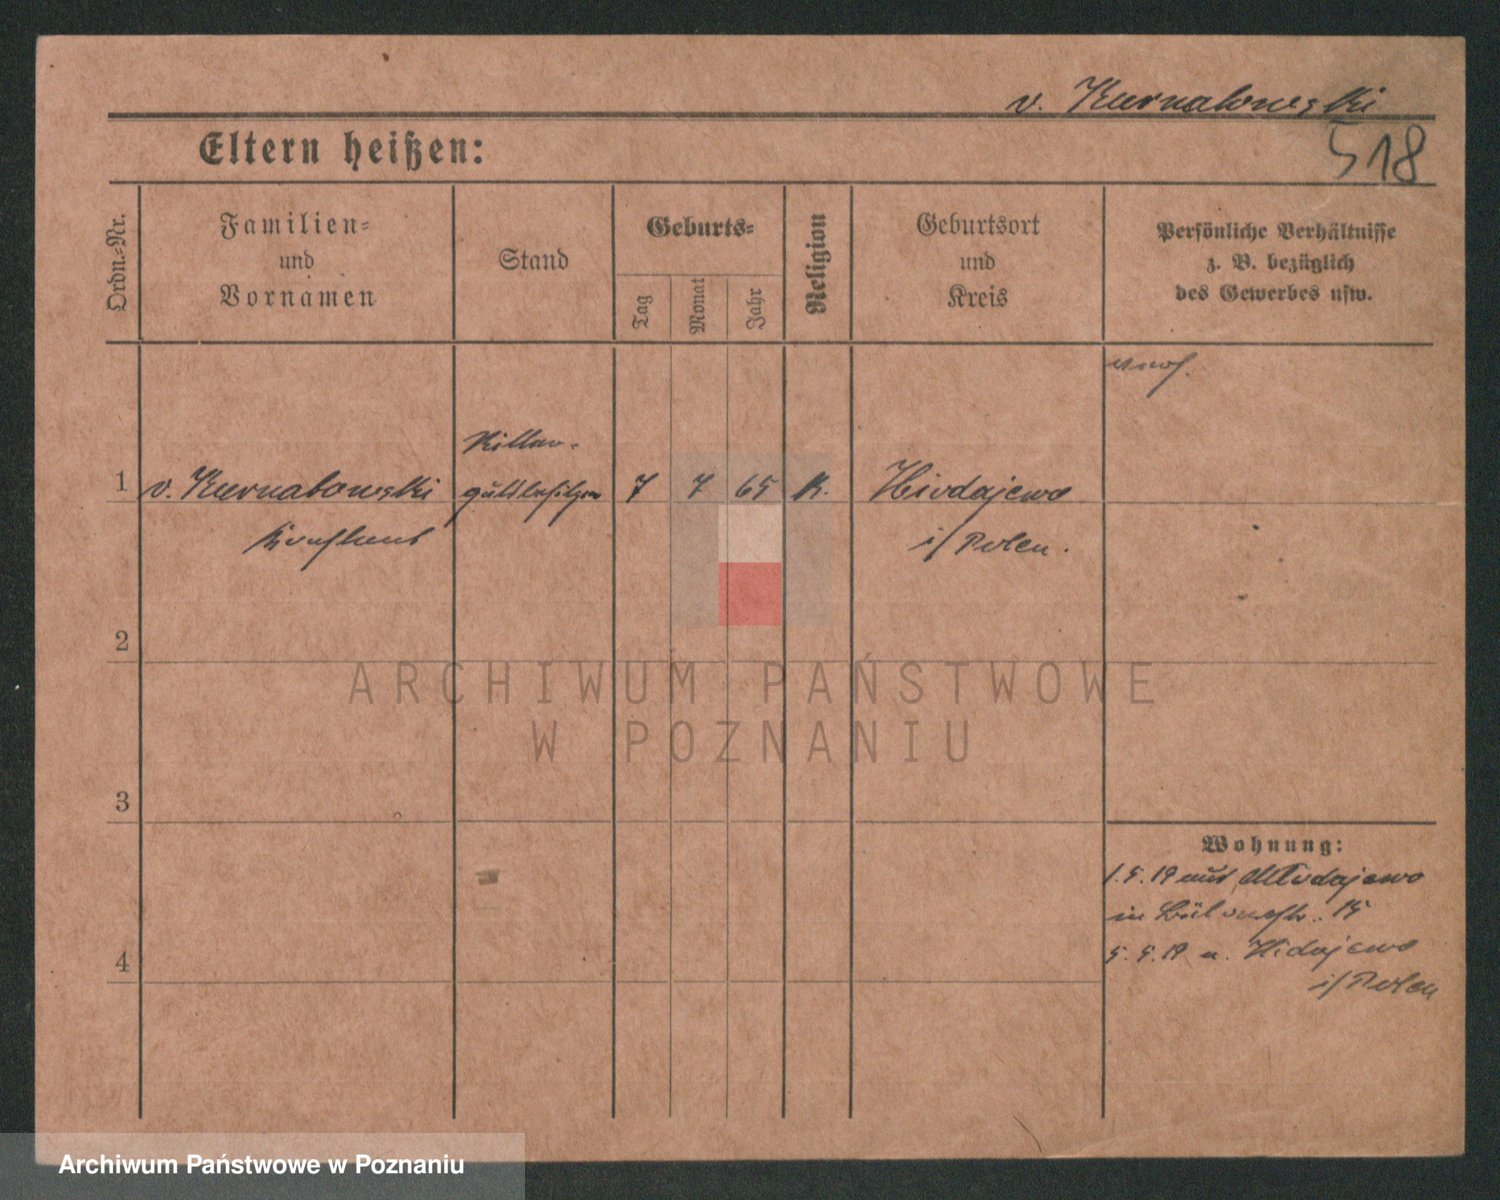 v. Kurnatowski
518
Eltern heißen:
Ordn.-Nr.
Familien-
und
Vornamen
Stand
Geburts-
Tag
Monat
Jahr
Religion
Geburtsort
und
Kreis
Persönliche Verhältnisse
z. B. bezüglich
des Gewerbes usw.
Ritter-
1 v. Kurnatowski gutsbesitzer 7 7 65 K.
i/ Polen.
2
3
4
Wohnung:
1.5.19 aus
in 15
5.5.19 n.
i/ Polen
ARCHIWUM PAŃSTWOWE
W POZNANIU
Archiwum Państwowe w Poznaniu